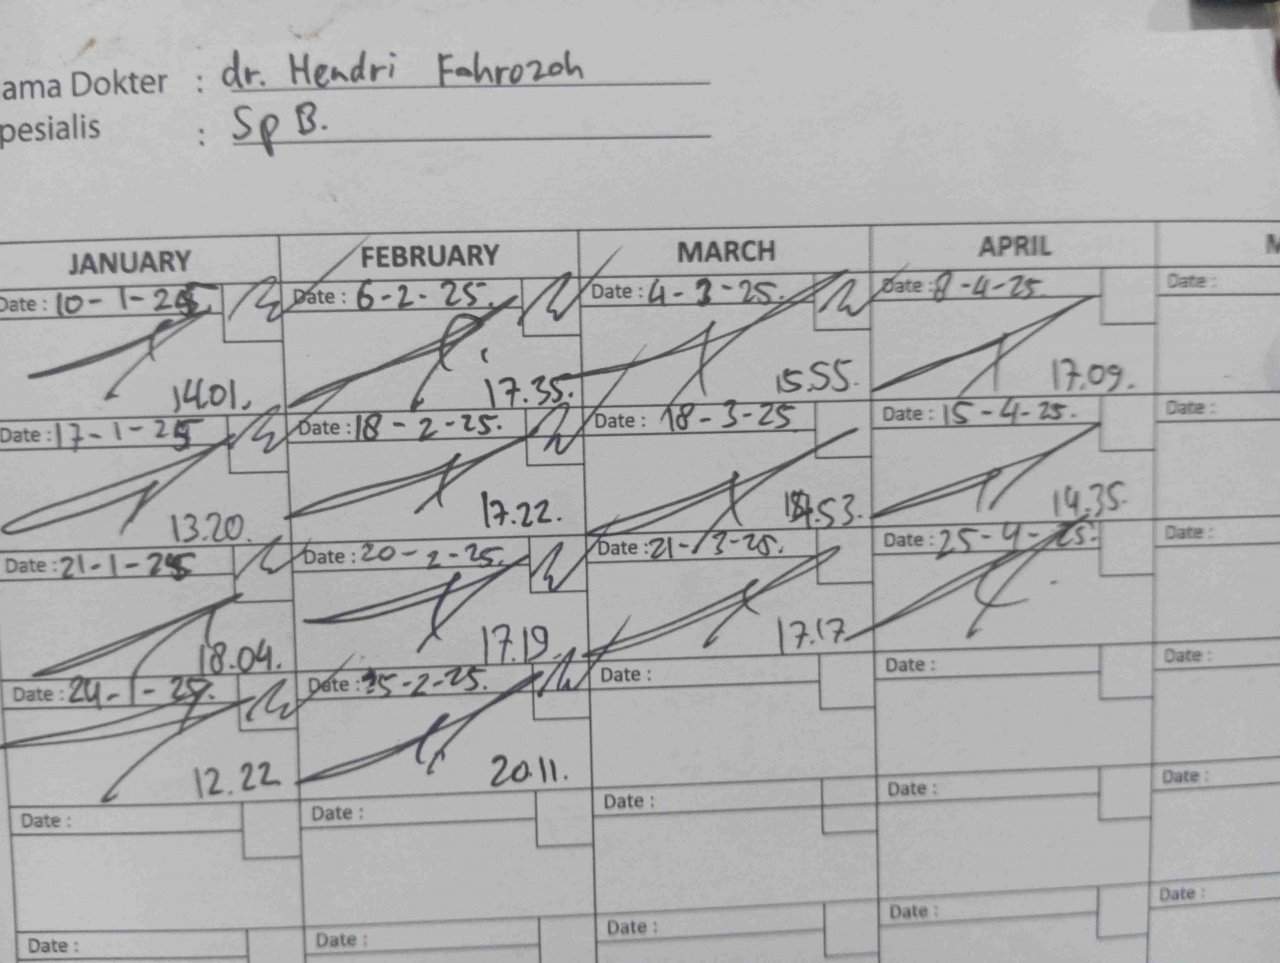 ama Dokter : dr. Hendri Fahrozoh
pesialis : Sp B.
JANUARY FEBRUARY MARCH APRIL M
Date : 10-1-25 Date : 6-2-25. Date : 4-3-25. Date : 8-4-25. Date :
14.01. 17.35. 15.55. 17.09.
Date : 17-1-25 Date : 18-2-25. Date : 18-3-25 Date : 15-4-25. Date :
13.20. 17.22. 14.35.
Date : 21-1-25 Date : 20-2-25. Date : 21-3-25. Date : 25-4-25. Date :
18.04. 17.19. 17.17
Date : 24-1-25. Date : 25-2-25. Date : Date : Date :
12.22 20.11.
Date : Date : Date : Date : Date :
Date : Date : Date : Date : Date :